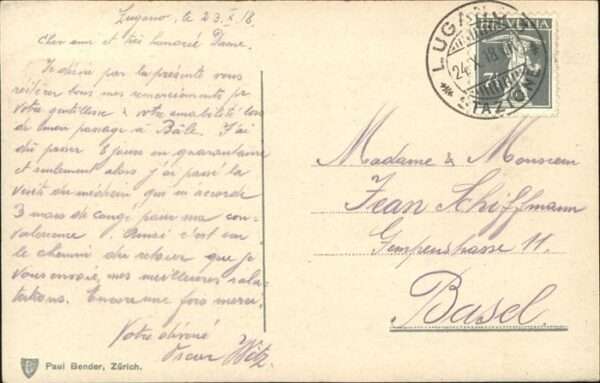 Lugano, le 23.X.18
Cher ami et très honorée Dame.
Je désire par la présente vous
réitérer tous mes remerciements pr
votre gentillesse & votre amabilité lors
de mon passage à Bâle. J'ai
dû passer 8 jours en quarantaine
et seulement alors j'ai passé la
visite du médecin qui m'accorde
3 mois de congé pour ma con-
valescence !. Aussi c'est sur
le chemin du retour que je
vous envoie, mes meilleures salu-
tations. Encore une fois merci.
Votre dévoué
Oscar Witz
Paul Bender, Zürich.
HELVETIA
LUGANO
24.X.18
STAZIONE
Madame & Monsieur
Jean Schiffmann
Gempenstrasse 11.
Basel